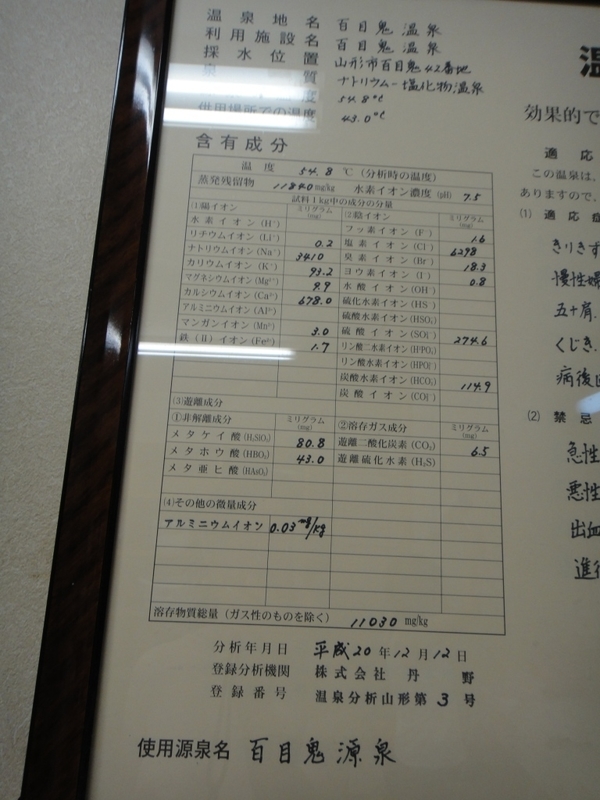 温泉地名 百目鬼温泉
利用施設名 百目鬼温泉
採水位置 山形市百目鬼42番地
泉質 ナトリウム-塩化物温泉
度 54.8℃
供用場所での温度 43.0℃
含有成分
温度 54.8 ℃ (分析時の温度)
蒸発残留物 11840mg/kg 水素イオン濃度(pH) 7.5
試料1kg中の成分の分量
(1)陽イオン ミリグラム(mg) (2)陰イオン ミリグラム(mg)
水素イオン(H⁺) フッ素イオン(F⁻) 1.6
リチウムイオン(Li⁺) 0.2 塩素イオン(Cl⁻) 6298
ナトリウムイオン(Na⁺) 3410 臭素イオン(Br⁻) 18.3
カリウムイオン(K⁺) 93.2 ヨウ素イオン(I⁻) 0.8
マグネシウムイオン(Mg²⁺) 9.9 水酸イオン(OH⁻)
カルシウムイオン(Ca²⁺) 678.0 硫化水素イオン(HS⁻)
アルミニウムイオン(Al³⁺) 硫酸水素イオン(HSO₄⁻)
マンガンイオン(Mn²⁺) 3.0 硫酸イオン(SO₄²⁻) 274.6
鉄(Ⅱ)イオン(Fe²⁺) 1.7 リン酸二水素イオン(H₂PO₄⁻)
リン酸水素イオン(HPO₄²⁻)
炭酸水素イオン(HCO₃⁻) 114.9
炭酸イオン(CO₃²⁻)
(3)遊離成分
①非解離成分 ミリグラム(mg) ②溶存ガス成分 ミリグラム(mg)
メタケイ酸(H₂SiO₃) 80.8 遊離二酸化炭素(CO₂) 6.5
メタホウ酸(HBO₂) 43.0 遊離硫化水素(H₂S)
メタ亜ヒ酸(HAsO₂)
(4)その他の微量成分
アルミニウムイオン 0.03mg/kg
溶存物質総量(ガス性のものを除く) 11030 mg/kg
分析年月日 平成20年12月12日
登録分析機関 株式会社 丹野
登録番号 温泉分析山形第3号
使用源泉名 百目鬼源泉
温
効果的で
適応
この温泉は、
ありますので、
(1) 適応症
きりきず
慢性婦
五十肩.
くじき.
病後回
(2) 禁忌
急性
悪性
出血
進行